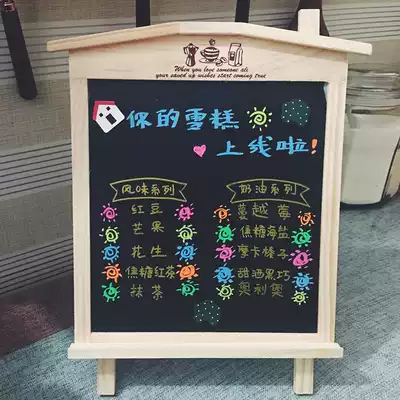 When you love someone all
your saved up wishes start coming true
你的雪糕
上线啦!
风味系列
红豆
芒果
花生
焦糖红茶
抹茶
奶油系列
蔓越莓
焦糖海盐
摩卡榛子
甜酒果巧
奥利奥